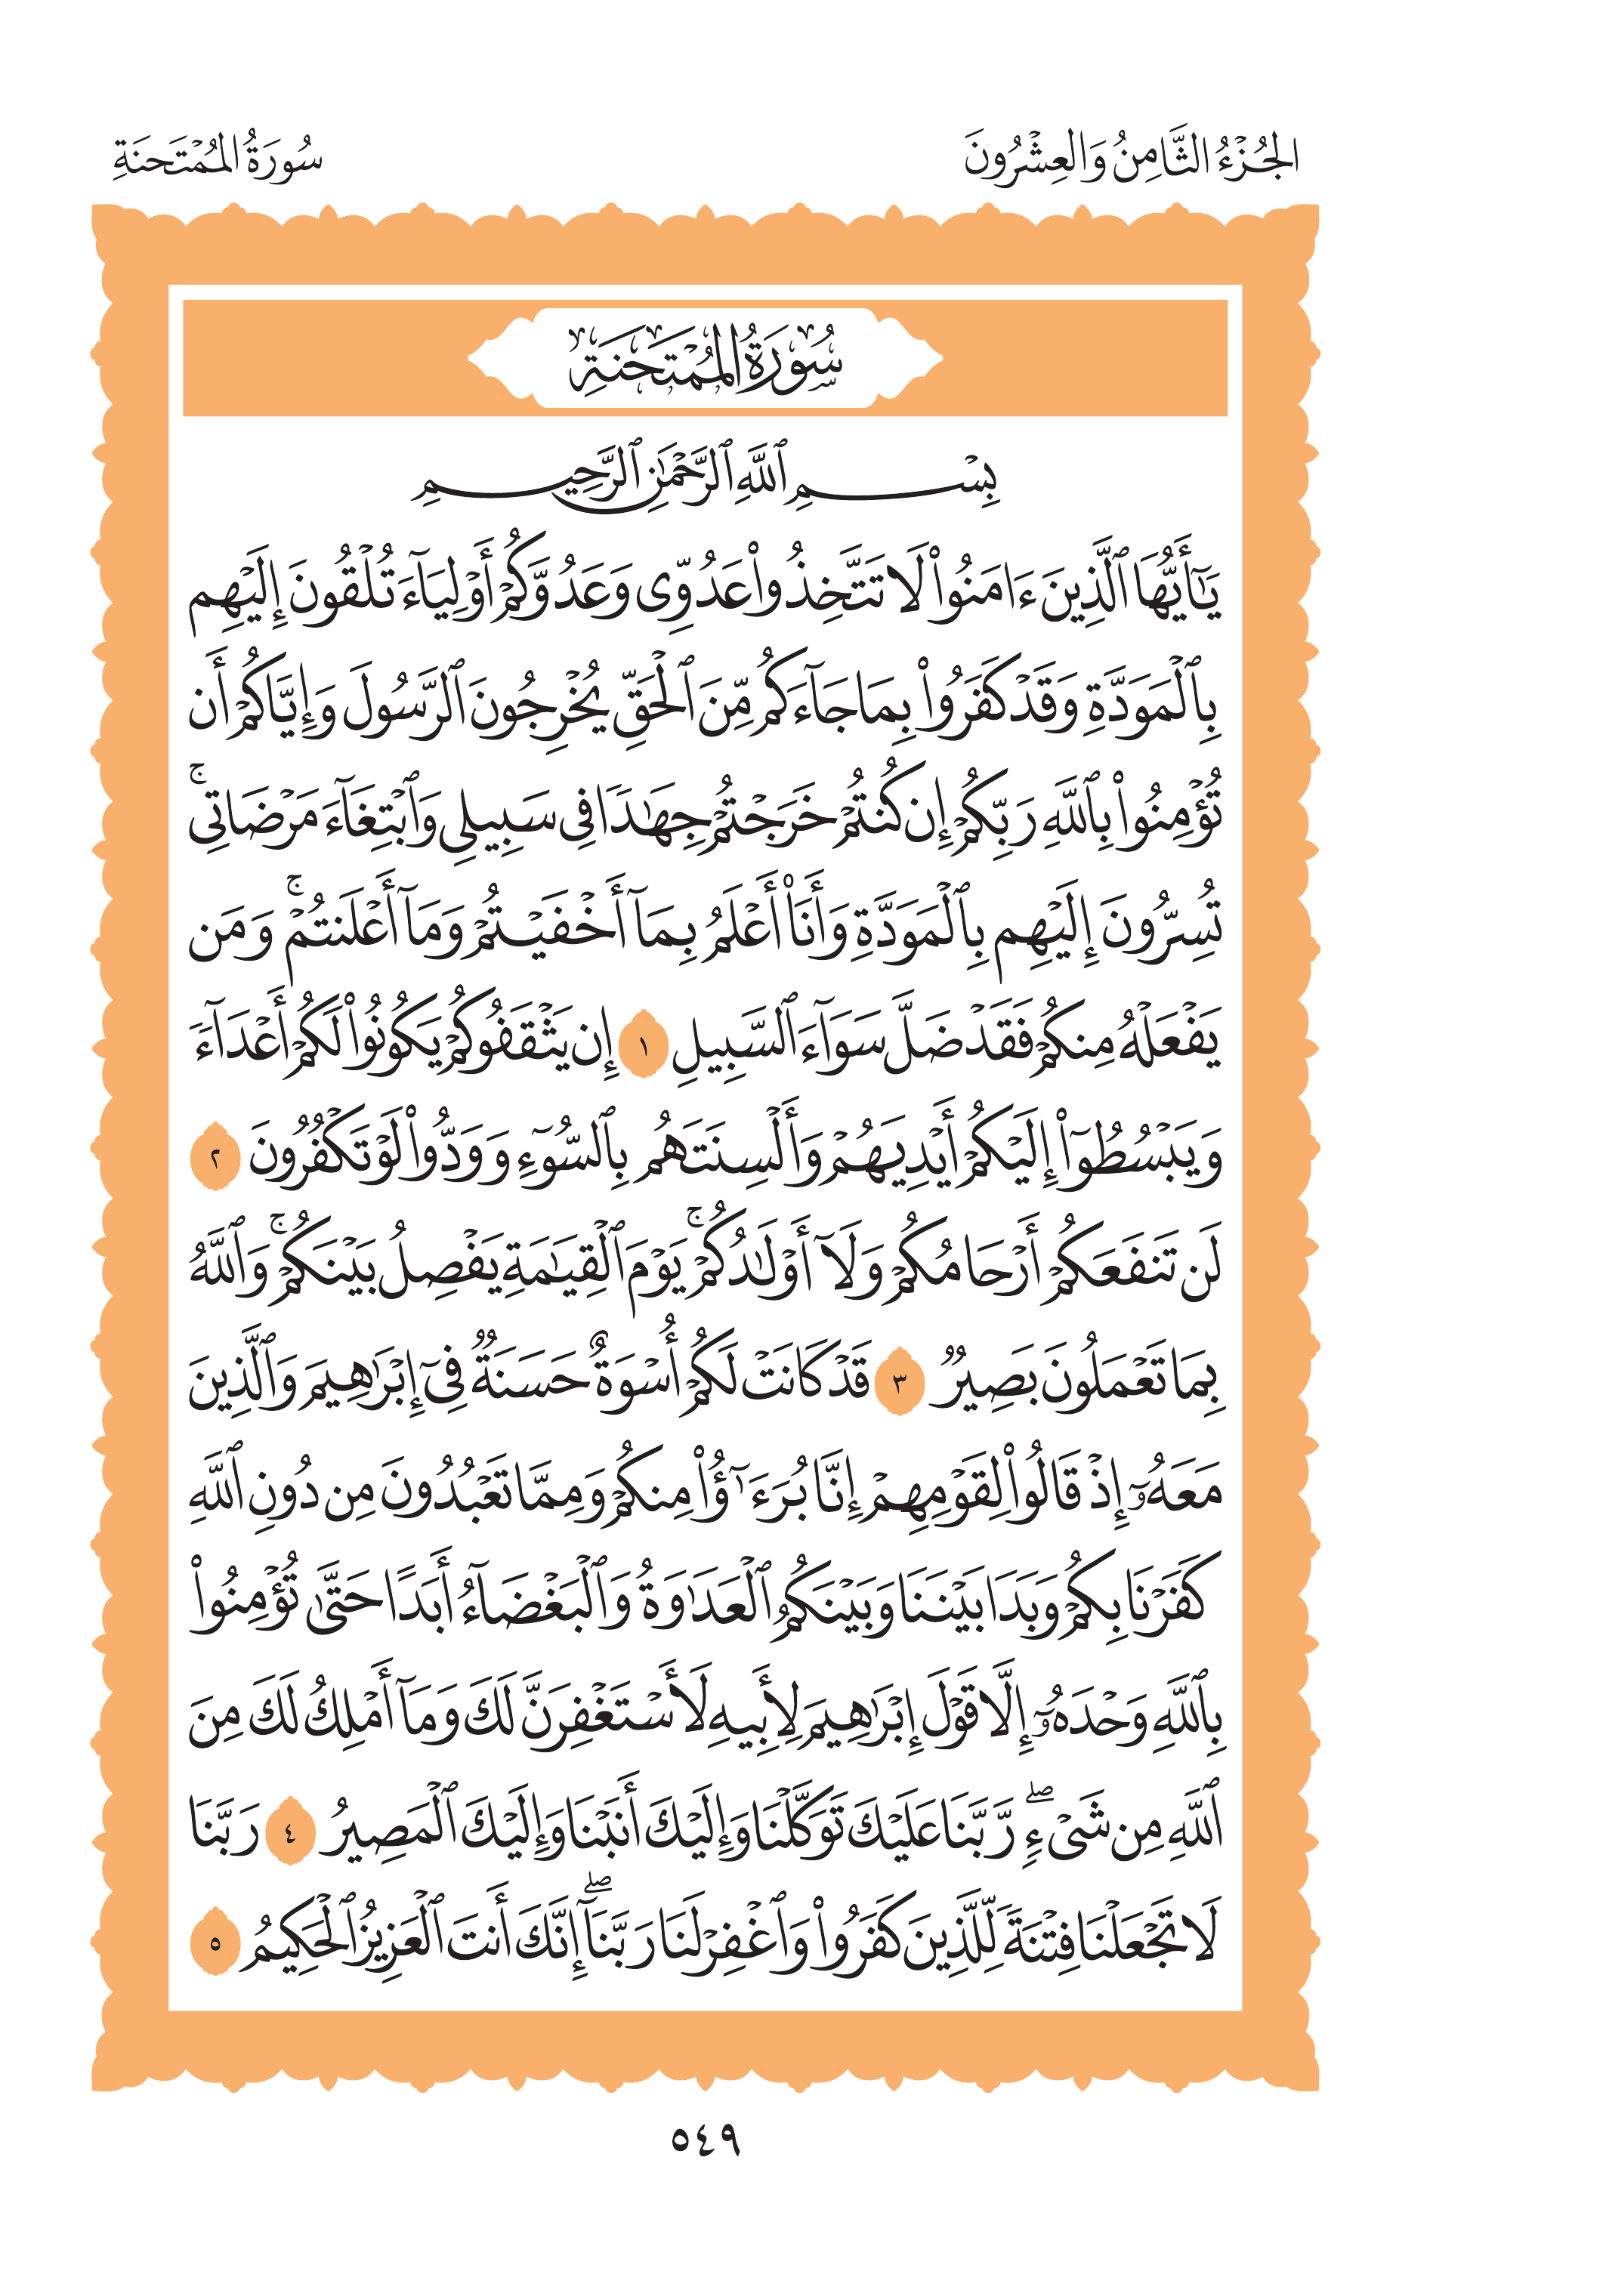 الجُزْءُ الثَّامِنُ وَالعِشْرُونَ
سُورَةُ المُمْتَحنَةِ
سُورَةُ المُمْتَحنَةِ
بِسْمِ ٱللَّهِ ٱلرَّحْمَٰنِ ٱلرَّحِيمِ
يَٰٓأَيُّهَا ٱلَّذِينَ ءَامَنُوا۟ لَا تَتَّخِذُوا۟ عَدُوِّى وَعَدُوَّكُمْ أَوْلِيَآءَ تُلْقُونَ إِلَيْهِم
بِٱلْمَوَدَّةِ وَقَدْ كَفَرُوا۟ بِمَا جَآءَكُم مِّنَ ٱلْحَقِّ يُخْرِجُونَ ٱلرَّسُولَ وَإِيَّاكُمْ أَن
تُؤْمِنُوا۟ بِٱللَّهِ رَبِّكُمْ إِن كُنتُمْ خَرَجْتُمْ جِهَٰدًا فِى سَبِيلِى وَٱبْتِغَآءَ مَرْضَاتِى ۚ
تُسِرُّونَ إِلَيْهِم بِٱلْمَوَدَّةِ وَأَنَا۠ أَعْلَمُ بِمَآ أَخْفَيْتُمْ وَمَآ أَعْلَنتُمْ ۚ وَمَن
يَفْعَلْهُ مِنكُمْ فَقَدْ ضَلَّ سَوَآءَ ٱلسَّبِيلِ ١ إِن يَثْقَفُوكُمْ يَكُونُوا۟ لَكُمْ أَعْدَآءً
وَيَبْسُطُوٓا۟ إِلَيْكُمْ أَيْدِيَهُمْ وَأَلْسِنَتَهُم بِٱلسُّوٓءِ وَوَدُّوا۟ لَوْ تَكْفُرُونَ ٢
لَن تَنفَعَكُمْ أَرْحَامُكُمْ وَلَآ أَوْلَٰدُكُمْ ۚ يَوْمَ ٱلْقِيَٰمَةِ يَفْصِلُ بَيْنَكُمْ ۚ وَٱللَّهُ
بِمَا تَعْمَلُونَ بَصِيرٌ ٣ قَدْ كَانَتْ لَكُمْ أُسْوَةٌ حَسَنَةٌ فِىٓ إِبْرَٰهِيمَ وَٱلَّذِينَ
مَعَهُۥٓ إِذْ قَالُوا۟ لِقَوْمِهِمْ إِنَّا بُرَءَٰٓؤُا۟ مِنكُمْ وَمِمَّا تَعْبُدُونَ مِن دُونِ ٱللَّهِ
كَفَرْنَا بِكُمْ وَبَدَا بَيْنَنَا وَبَيْنَكُمُ ٱلْعَدَٰوَةُ وَٱلْبَغْضَآءُ أَبَدًا حَتَّىٰ تُؤْمِنُوا۟
بِٱللَّهِ وَحْدَهُۥٓ إِلَّا قَوْلَ إِبْرَٰهِيمَ لِأَبِيهِ لَأَسْتَغْفِرَنَّ لَكَ وَمَآ أَمْلِكُ لَكَ مِنَ
ٱللَّهِ مِن شَىْءٍ ۖ رَّبَّنَا عَلَيْكَ تَوَكَّلْنَا وَإِلَيْكَ أَنَبْنَا وَإِلَيْكَ ٱلْمَصِيرُ ٤ رَبَّنَا
لَا تَجْعَلْنَا فِتْنَةً لِّلَّذِينَ كَفَرُوا۟ وَٱغْفِرْ لَنَا رَبَّنَآ ۖ إِنَّكَ أَنتَ ٱلْعَزِيزُ ٱلْحَكِيمُ ٥
٥٤٩